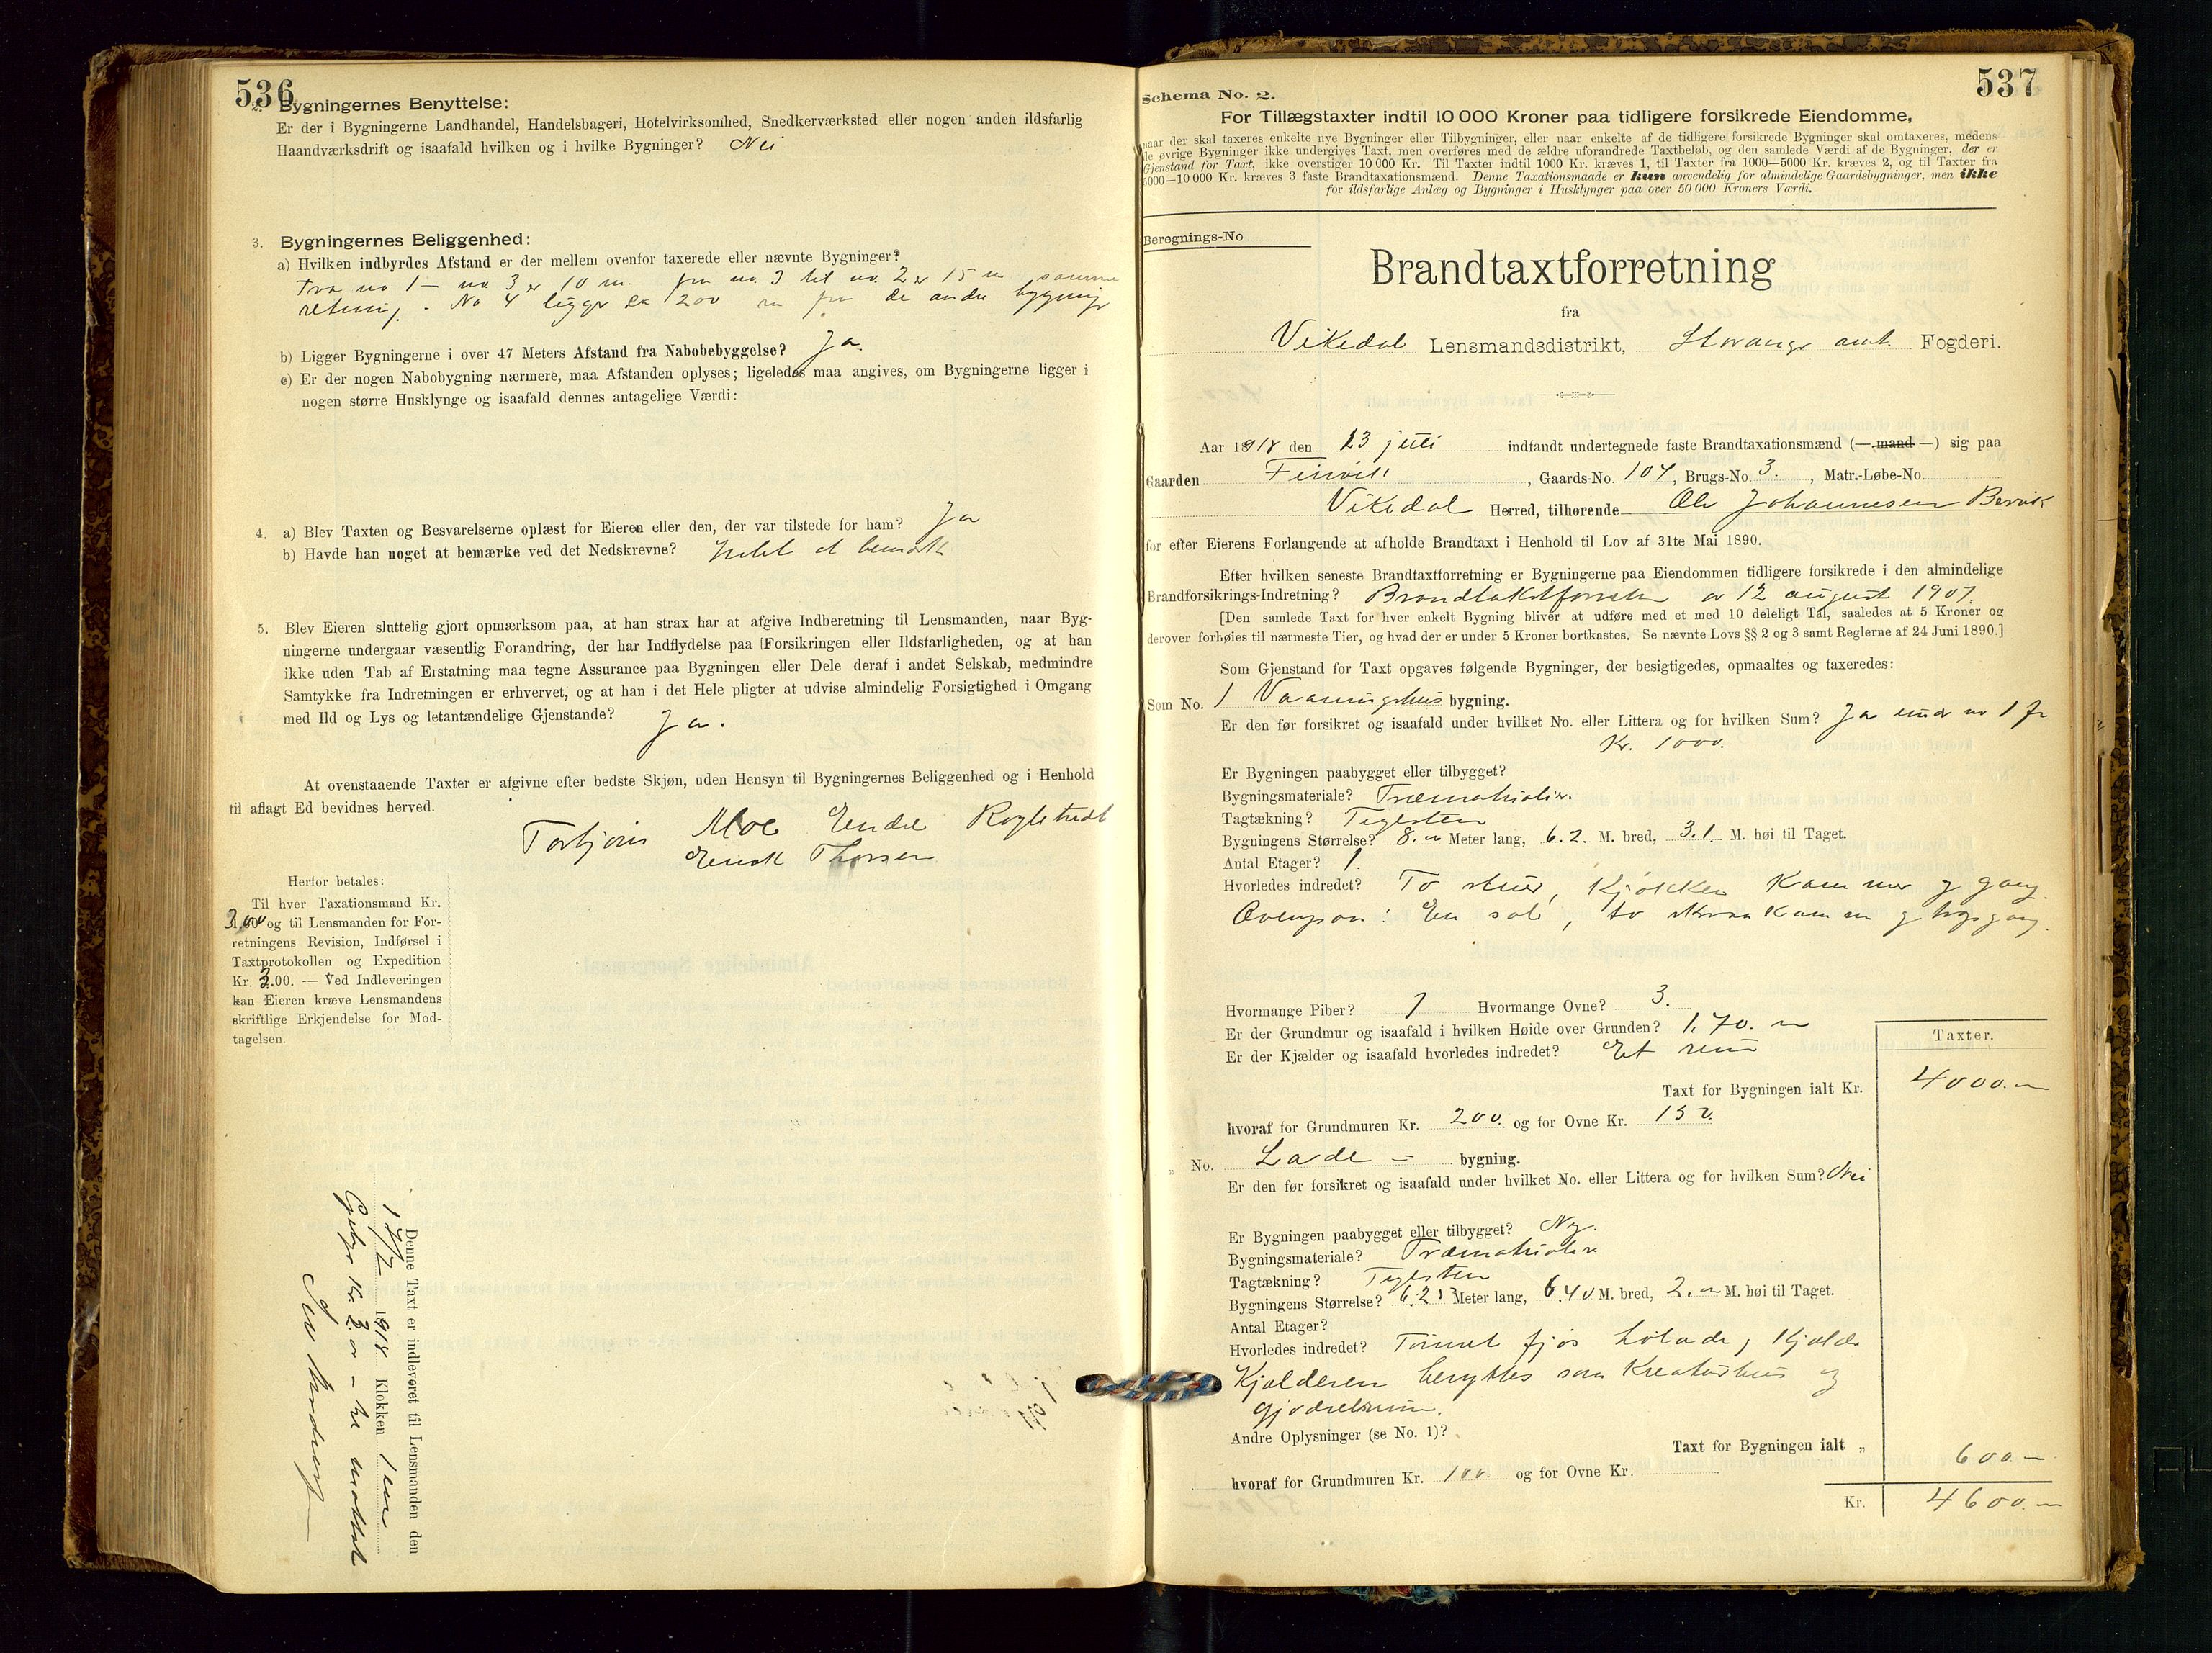 536
2. Bygningernes Benyttelse:
Er der i Bygningerne Landhandel, Handelsbageri, Hotelvirksomhed, Snedkerværksted eller nogen anden ildsfarlig
Haandværksdrift og isaafald hvilken og i hvilke Bygninger? Nei
3. Bygningernes Beliggenhed:
a) Hvilken indbyrdes Afstand er der mellem ovenfor taxerede eller nævnte Bygninger?
Fra no 1 – no. 3 er 10 m. fra no. 3 til no. 2 er 15 m samme
retning. No 4 ligger ca 200 m fra de andre bygninger
b) Ligger Bygningerne i over 47 Meters Afstand fra Nabobebyggelse? Ja.
c) Er der nogen Nabobygning nærmere, maa Afstanden oplyses; ligeledes maa angives, om Bygningerne ligger i
nogen større Husklynge og isaafald dennes antagelige Værdi:
4. a) Blev Taxten og Besvarelserne oplæst for Eieren eller den, der var tilstede for ham? Ja
b) Havde han noget at bemærke ved det Nedskrevne? Intet at bemærke
5. Blev Eieren sluttelig gjort opmærksom paa, at han strax har at afgive Indberetning til Lensmanden, naar Byg-
ningerne undergaar væsentlig Forandring, der har Indflydelse paa Forsikringen eller Ildsfarligheden, og at han
ikke uden Tab af Erstatning maa tegne Assurance paa Bygningen eller Dele deraf i andet Selskab, medmindre
Samtykke fra Indretningen er erhvervet, og at han i det Hele pligter at udvise almindelig Forsigtighed i Omgang
med Ild og Lys og letantændelige Gjenstande? Ja.
At ovenstaaende Taxter er afgivne efter bedste Skjøn, uden Hensyn til Bygningernes Beliggenhed og i Henhold
til aflagt Ed bevidnes herved.
Torbjørn Moe Endre
Thorsen
Herfor betales:
Til hver Taxationsmand Kr.
3.00 og til Lensmanden for For-
retningens Revision, Indførsel i
Taxtprotokollen og Expedition
Kr. 3.00. — Ved Indleveringen
kan Eieren kræve Lensmandens
skriftlige Erkjendelse for Mod-
tagelsen.
Denne Taxt er indleveret til Lensmanden den
17/7 1918 Klokken 1 em
Gebyr Kr. 3.00 – er mottat
537
Schema No. 2.
For Tillægstaxter indtil 10 000 Kroner paa tidligere forsikrede Eiendomme,
naar der skal taxeres enkelte nye Bygninger eller Tilbygninger, eller naar enkelte af de tidligere forsikrede Bygninger skal omtaxeres, medens
de øvrige Bygninger ikke undergives Taxt, men overføres med de ældre uforandrede Taxtbeløb, og den samlede Værdi af de Bygninger, der er
Gjenstand for Taxt, ikke overstiger 10 000 Kr. Til Taxter indtil 1000 Kr. kræves 1, til Taxter fra 1000—5000 Kr. kræves 2, og til Taxter fra
5000—10 000 Kr. kræves 3 faste Brandtaxationsmænd. Denne Taxationsmaade er kun anvendelig for almindelige Gaardsbygninger, men ikke
for ildsfarlige Anlæg og Bygninger i Husklynger paa over 50 000 Kroners Værdi.
Beregnings-No
Brandtaxtforretning
fra
Vikedal Lensmandsdistrikt, Stavanger amt. Fogderi.
Aar 1918 den 13 juli indfandt undertegnede faste Brandtaxationsmænd (— mand —) sig paa
Gaarden , Gaards-No. 104, Brugs-No. 3. , Matr.-Løbe-No.
Vikedal Herred, tilhørende Ole Johannesen
for efter Eierens Forlangende at afholde Brandtaxt i Henhold til Lov af 31te Mai 1890.
Efter hvilken seneste Brandtaxtforretning er Bygningerne paa Eiendommen tidligere forsikrede i den almindelige
Brandforsikrings-Indretning? av 12 august 1907.
[Den samlede Taxt for hver enkelt Bygning bliver at udføre med et med 10 deleligt Tal, saaledes at 5 Kroner og
derover forhøies til nærmeste Tier, og hvad der er under 5 Kroner bortkastes. Se nævnte Lovs §§ 2 og 3 samt Reglerne af 24 Juni 1890.]
Som Gjenstand for Taxt opgaves følgende Bygninger, der besigtigedes, opmaaltes og taxeredes:
Som No. 1 Vaaningshus bygning.
Er den før forsikret og isaafald under hvilket No. eller Littera og for hvilken Sum? Ja under no 1 for
Kr. 1000.
Er Bygningen paabygget eller tilbygget?
Bygningsmateriale? Træmaterialer.
Tagtækning? Teglsten
Bygningens Størrelse? 8. Meter lang, 6.2. M. bred, 3.1 M. høi til Taget.
Antal Etager? 1.
Hvorledes indredet? To stuer, Kjøkken Kammer og gang.
Ovenpaa: En sal, to skraakammer og
Hvormange Piber? 1 Hvormange Ovne? 3.
Er der Grundmur og isaafald i hvilken Høide over Grunden? 1.70. m
Er der Kjælder og isaafald hvorledes indredet? Et rum
Taxter.
Taxt for Bygningen ialt Kr. 4000.—
hvoraf for Grundmuren Kr. 200. og for Ovne Kr. 150.
„ No. Lade – bygning.
Er den før forsikret og isaafald under hvilket No. eller Littera og for hvilken Sum? Nei
Er Bygningen paabygget eller tilbygget? Ny.
Bygningsmateriale? Træmaterialer
Tagtækning? Teglsten
Bygningens Størrelse? 6.25 Meter lang, 6.40 M. bred, 2. M. høi til Taget.
Antal Etager?
Hvorledes indredet? Tømret fjøs høladе, Kjælder
Kjælderen benyttes som Kreaturhus og
gjødselrum.
Andre Oplysninger (se No. 1)?
Taxt for Bygningen ialt „ 600.—
hvoraf for Grundmuren Kr. 100. og for Ovne Kr.
Kr. 4600.—